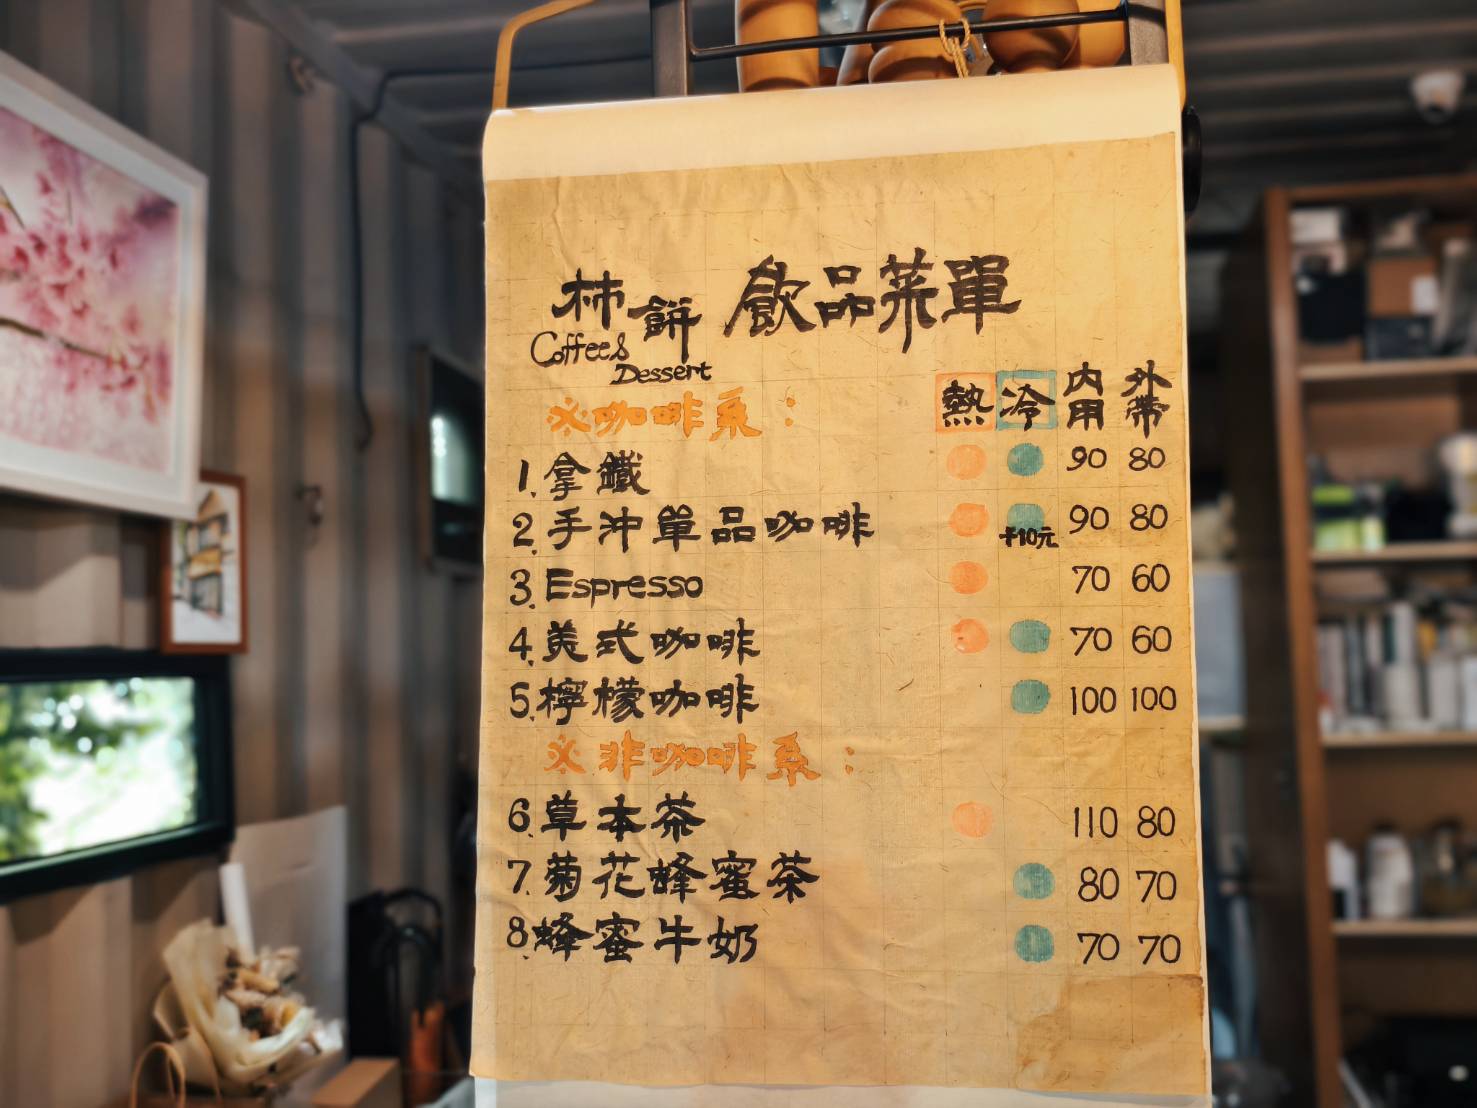 柿餅 飲品菜單
Coffee&
Dessert
※咖啡系： 熱 冷 內用 外帶
1.拿鐵 90 80
2.手沖單品咖啡 +10元 90 80
3.Espresso 70 60
4.美式咖啡 70 60
5.檸檬咖啡 100 100
※非咖啡系：
6.草本茶 110 80
7.菊花蜂蜜茶 80 70
8.蜂蜜牛奶 70 70